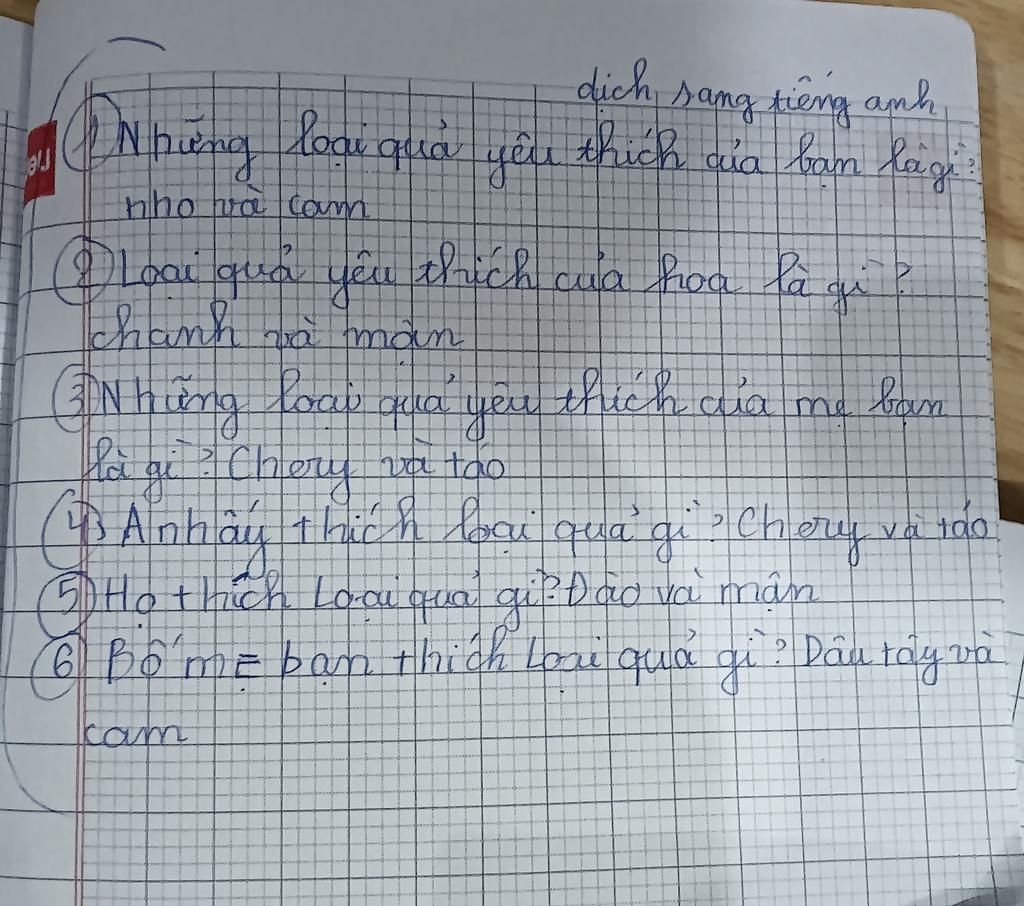 dịch sang tiếng anh
1) Những loại quả yêu thích của bạn là gì?
nho và cam
2) Loại quả yêu thích của hoa là gì?
chanh và mận
3) Những loại quả yêu thích của mẹ bạn
là gì? Chery và táo
4) Anh ấy thích loại quả gì? Chery và táo
5) Họ thích Loại quả gì? Đào và mận
6 Bố mẹ bạn thích Loại quả gì? Dâu tây và
cam